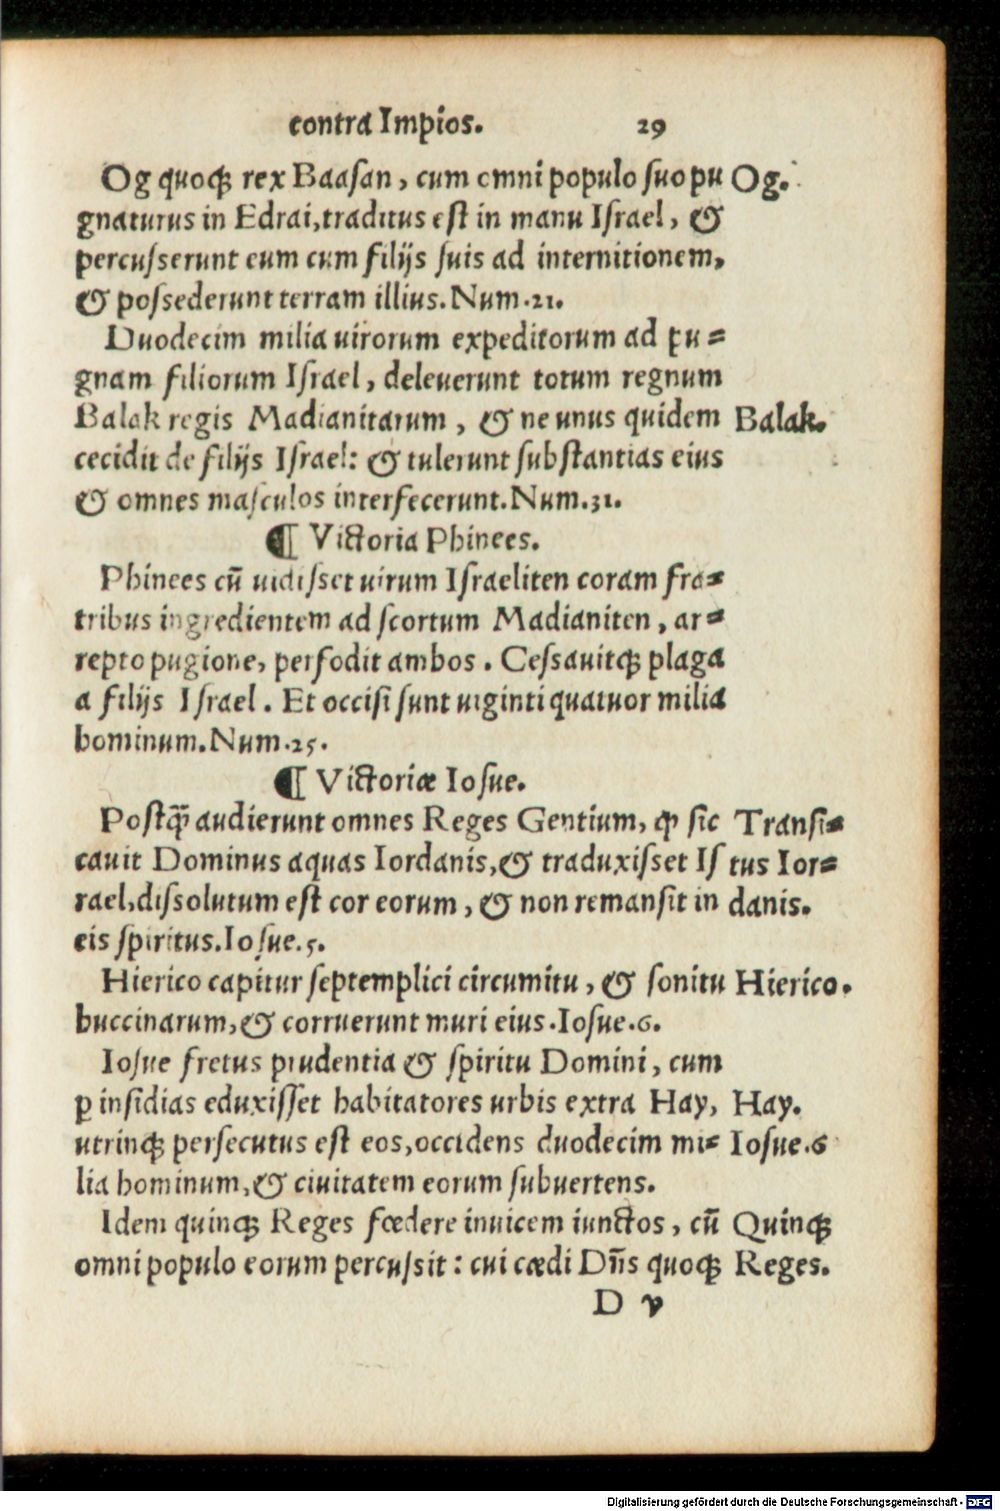 contra Impios. 29
Og quoqꝫ rex Baasan, cum omni populo suo pu Og.
gnaturus in Edrai, traditus est in manu Israel, &
percusserunt eum cum filijs suis ad internitionem,
& possederunt terram illius. Num. 21.
Duodecim milia uirorum expeditorum ad pu=
gnam filiorum Israel, deleuerunt totum regnum
Balak regis Madianitarum, & ne unus quidem Balak.
cecidit de filijs Israel: & tulerunt substantias eius
& omnes masculos interfecerunt. Num. 31.
¶ Victoria Phinees.
Phinees cū uidisset uirum Israeliten coram fra=
tribus ingredientem ad scortum Madianiten, ar=
repto pugione, perfodit ambos. Cessauitqꝫ plaga
a filijs Israel. Et occisi sunt uiginti quatuor milia
hominum. Num. 25.
¶ Victoriæ Iosue.
Postq̄ audierunt omnes Reges Gentium, ꝙ sic Transi=
cauit Dominus aquas Iordanis, & traduxisset Is tus Ior=
rael, dissolutum est cor eorum, & non remansit in danis.
eis spiritus. Iosue. 5.
Hierico capitur septemplici circumitu, & sonitu Hierico.
buccinarum, & corruerunt muri eius. Iosue. 6.
Iosue fretus prudentia & spiritu Domini, cum
ꝑ insidias eduxisset habitatores urbis extra Hay, Hay.
utrinqꝫ persecutus est eos, occidens duodecim mi= Iosue. 6
lia hominum, & ciuitatem eorum subuertens.
Idem quinqꝫ Reges fœdere inuicem iunctos, cū Quinqꝫ
omni populo eorum percussit: cui cædi Dn̄s quoqꝫ Reges.
D v
Digitalisierung gefördert durch die Deutsche Forschungsgemeinschaft - DFG